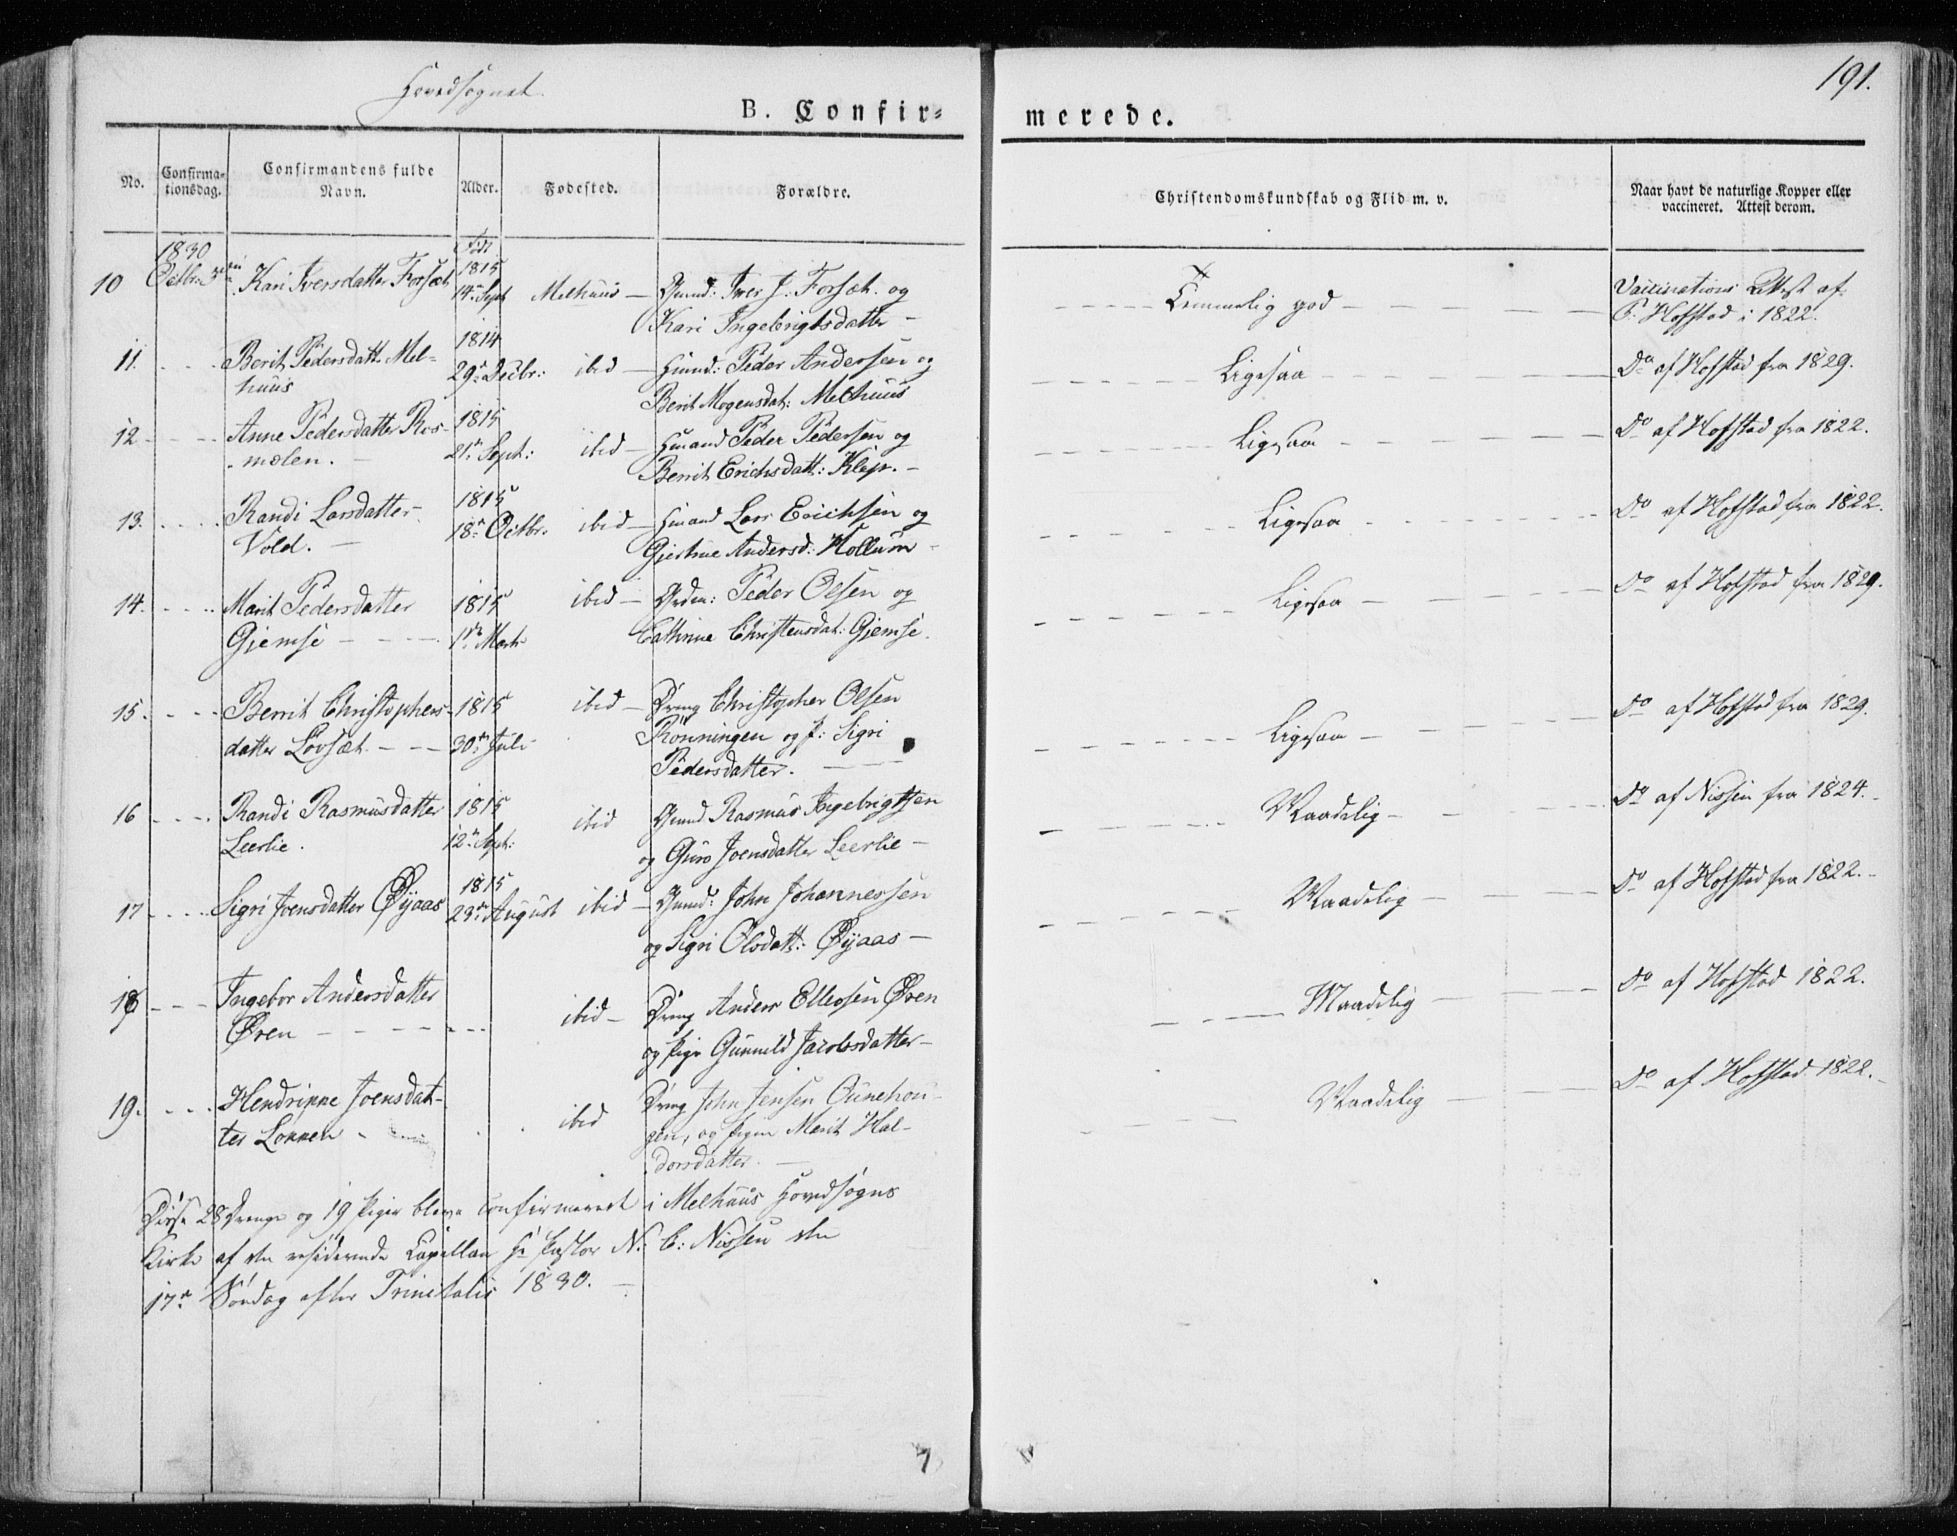 191.
Hovedsognet
B. Confirmerede.
No. Confirmationsdag. Confirmandens fulde Navn. Alder. Fødested. Forældre. Christendomskundskab og Flid m. v. Naar havt de naturlige Kopper eller vaccineret. Attest derom.
1830 Født
10 Octbr: 3die Kari Iversdatter Forsæt 1815 14n Sept Melhuus — Gmd: Iver J. Forsæt og
Kari Ingebrigtsdatter — Temmelig god — Vaccinations Attest af C. Hofstad i 1822.
11. Berit Pedersdatt. Mel-
huus 1814 29n Decbr: ibid — Huusd: Peder Andersen og
Berit Mogensdat: Melhuus Ligesaa Do af Hofstad fra 1829.
12 Anne Pedersdatter Ros-
molen. 1815 21n Sept: ibid — Huusmand Peder Pedersen og
Berrit Erichsdatt: Klep. — Ligesaa Do af Hofstad fra 1822.
13. Randi Larsdatter
Vold. 1815 18n Octbr. ibid — Huusmand Lars Erichsen og
Gjertrue Andersd: Hollum — Ligesaa Do af Hofstad fra 1822.
14. Marit Pedersdatter
Gjemse 1815 1ste Marts ibid — Peder Olsen og
Cathrine Christensdat: Gjemse. Ligesaa Do af Hofstad fra 1829.
15. Berrit Christophers-
datter Lovsæt 1815 30te Juli ibid — Dreng Christopher Olsen
Rönningen og P: Sigri
Pedersdatter. Ligesaa Do af Hofstad fra 1829.
16 Randi Rasmusdatter
Leerlie. 1815 12n Sept: ibid Gmd Rasmus Ingebrigtsen
og Guro Joensdatter Leerlie — Maadelig Do af Nissen fra 1824.
17 Sigri Joensdatter Øyaas 1815 23n August ibid — Gmd: John Johannessen
og Sigri Olsdatt: Øyaas — Maadelig Do af Hofstad fra 1822.
18 Ingebor Andersdatter
Øren ibid — Dreng Anders Ellevsen Øren
og Pige Gunnild Jacobsdatter — Maadelig Do af Hofstad 1822.
19. Hendrikke Joensdat-
ter Lokken ibid Dreng John Jensen
gen, og Pigen Marit Hal-
dorsdatter. Maadelig Do af Hofstad 1822.
Disse 28 Drenge og 19 Piger bleve Confirmeret i Melhuus Hovedsogns
Kirke af den residerende Capellan Hr Pastor N: C: Nissen den
17n Søndag efter Trinitatis 1830.